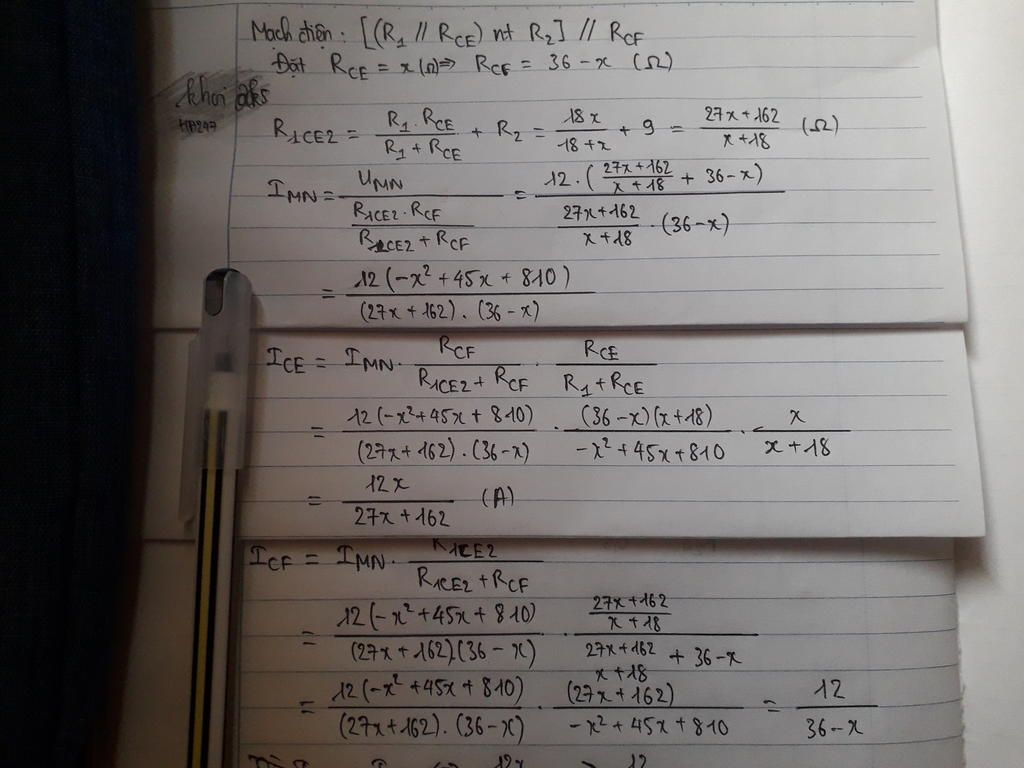 Mạch điện: [(R₁ // R_CE) nt R₂] // R_CF
Đặt R_CE = x (Ω) ⇒ R_CF = 36 - x (Ω)
khoi 2k5
HP247
R_1CE2 = (R₁ . R_CE)/(R₁ + R_CE) + R₂ = 18x/(18 + x) + 9 = (27x + 162)/(x + 18) (Ω)
I_MN = U_MN/((R_1CE2 . R_CF)/(R_1CE2 + R_CF)) = (12 . ((27x + 162)/(x + 18) + 36 - x))/((27x + 162)/(x + 18) . (36 - x))
= (12 (-x² + 45x + 810))/((27x + 162) . (36 - x))
I_CE = I_MN . R_CF/(R_1CE2 + R_CF) . R_CE/(R₁ + R_CE)
= (12 (-x² + 45x + 810))/((27x + 162) . (36 - x)) . ((36 - x)(x + 18))/(-x² + 45x + 810) . x/(x + 18)
= 12x/(27x + 162) (A)
I_CF = I_MN . R_1CE2/(R_1CE2 + R_CF)
= (12 (-x² + 45x + 810))/((27x + 162).(36 - x)) . ((27x + 162)/(x + 18))/((27x + 162)/(x + 18) + 36 - x)
= (12 (-x² + 45x + 810))/((27x + 162) . (36 - x)) . (27x + 162)/(-x² + 45x + 810) = 12/(36 - x)
12x 12